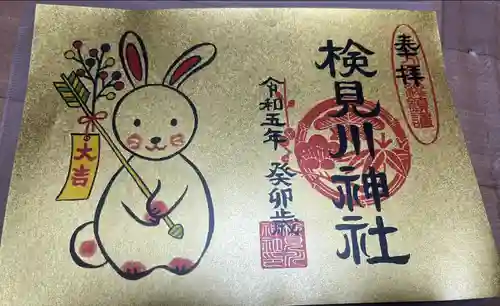 奉拝
検見川神社
令和五年 癸卯歳
大吉